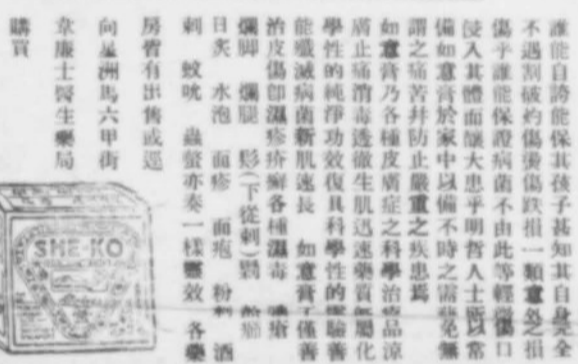 誰能自誇能保其孩子甚知其自身完全
不遇割破灼傷燙傷跌損一類意外之損
傷乎誰能保證病菌不由此等輕微傷口
侵入其體面釀大患乎明哲人士所以常
備如意膏於家中以備不時之需蓋免無
謂之痛苦幷防止嚴重之疾患焉
如意膏乃各種皮膚症之科學治療品涼
膚止痛消毒透徹生肌迅速藥質屬化
學性的純淨功效復具科學性的靈驗善
能殲滅病菌新肌速長 如意膏不僅善
治皮傷卽濕疹疥癬各種濕毒
爛脚 爛腿 (下從刺)
日炙 水泡 面疹 面皰 粉刺 酒
刺 蚊吮 蟲螫亦奏一樣靈效 各藥
房皆有出售或逕
向星洲馬六甲街
韋廉士醫生藥局
購買
SHE-KO